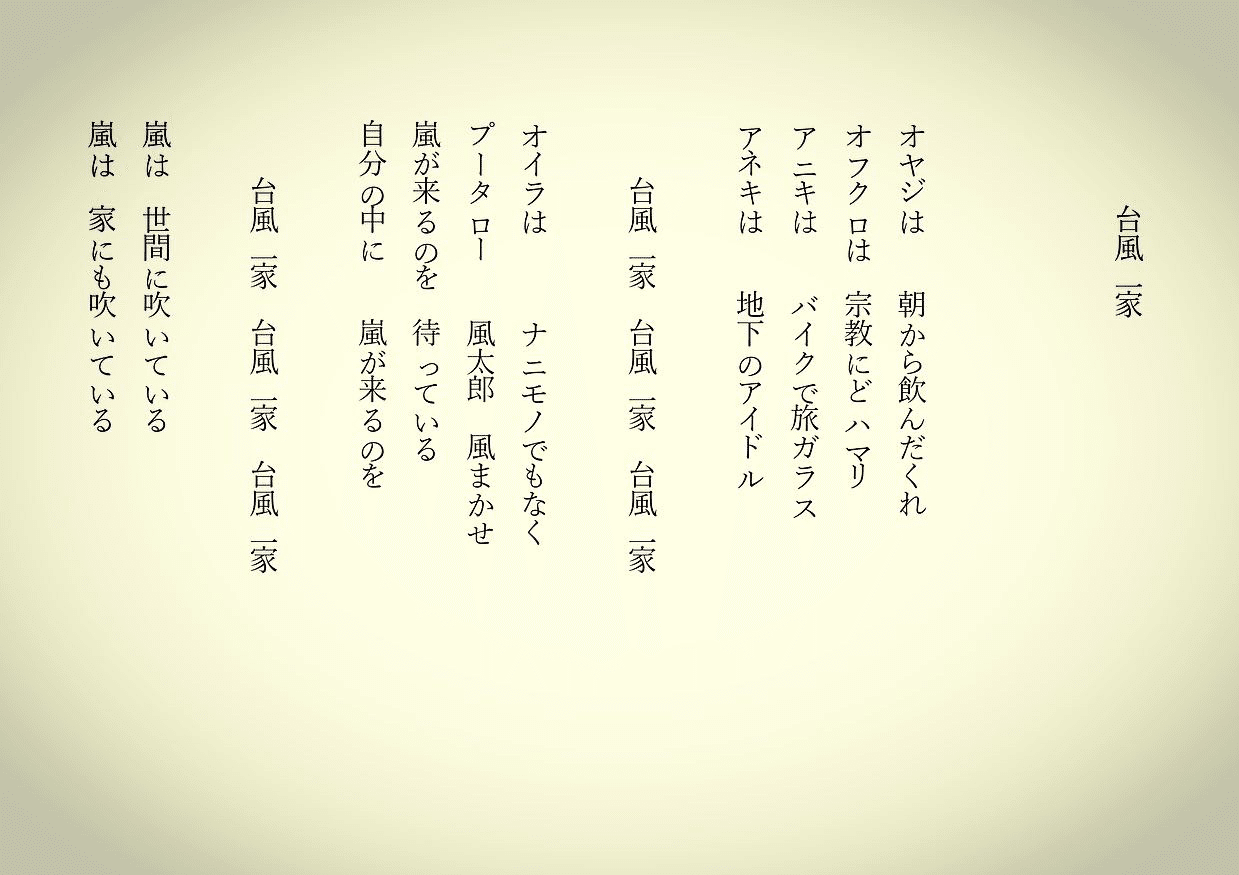 台風一家
オヤジは　朝から飲んだくれ
オフクロは　宗教にどハマリ
アニキは　バイクで旅ガラス
アネキは　地下のアイドル
台風一家　台風一家　台風一家
オイラは　ナニモノでもなく
プータロー　風太郎　風まかせ
嵐が来るのを　待っている
自分の中に　嵐が来るのを
台風一家　台風一家　台風一家
嵐は　世間に吹いている
嵐は　家にも吹いている